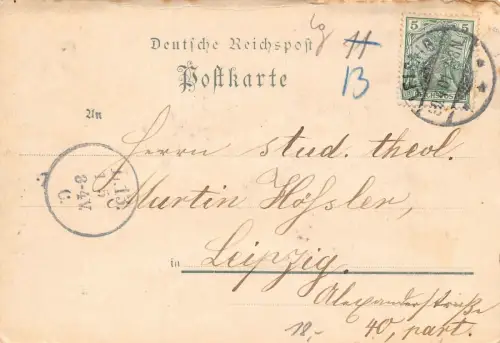 Deutsche Reichspost
Postkarte
11
13
5
An
Herrn stud. theol.
Martin Hößler,
in Leipzig.
Alexanderstraße
40, part.